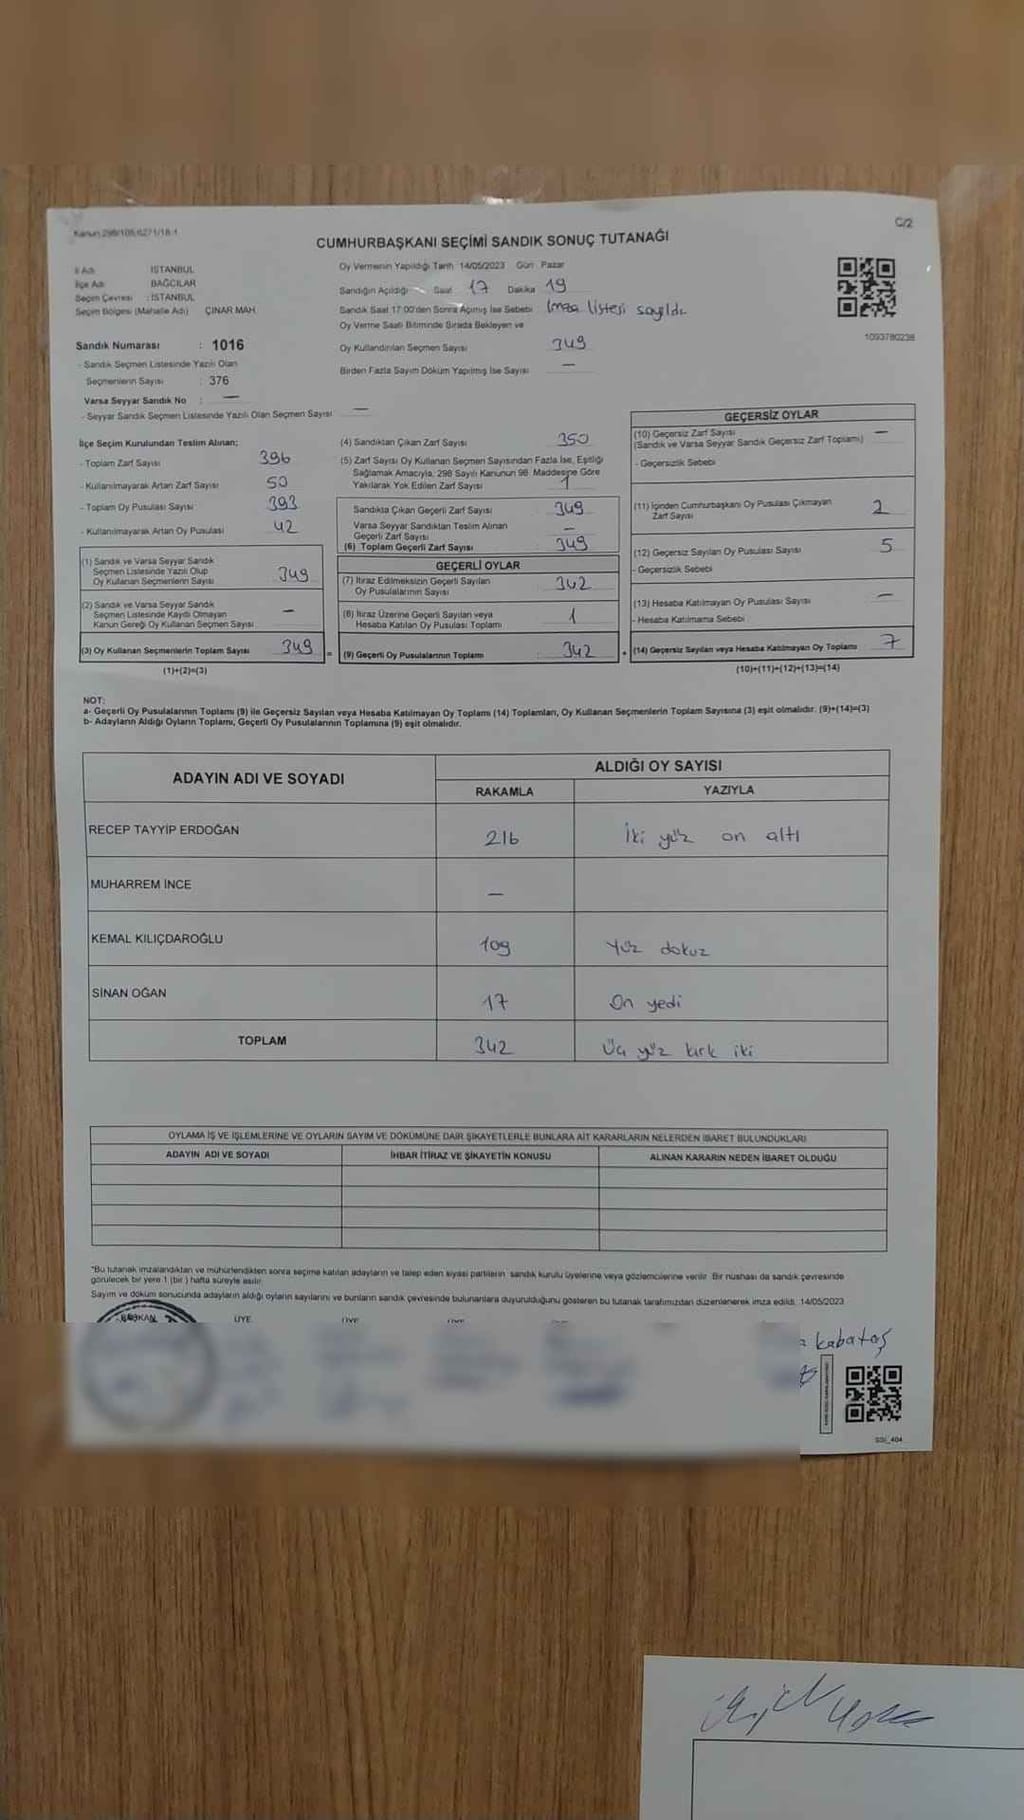 Kanun 298/105,6271/18-1
C/2
CUMHURBAŞKANI SEÇİMİ SANDIK SONUÇ TUTANAĞI
İl Adı İSTANBUL
İlçe Adı BAĞCILAR
Seçim Çevresi : İSTANBUL
Seçim Bölgesi (Mahalle Adı) ÇINAR MAH.
Sandık Numarası : 1016
- Sandık Seçmen Listesinde Yazılı Olan
Seçmenlerin Sayısı : 376
Varsa Seyyar Sandık No : —
- Seyyar Sandık Seçmen Listesinde Yazılı Olan Seçmen Sayısı —
Oy Vermenin Yapıldığı Tarih 14/05/2023 Gün Pazar
Sandığın Açıldığı Saat 17 Dakika 19
Sandık Saat 17:00'den Sonra Açılmış İse Sebebi İmza listesi sayıldı.
Oy Verme Saati Bitiminde Sırada Bekleyen ve
Oy Kullandırılan Seçmen Sayısı 349
Birden Fazla Sayım Döküm Yapılmış İse Sayısı —
1093780238
İlçe Seçim Kurulundan Teslim Alınan;
- Toplam Zarf Sayısı 396
- Kullanılmayarak Artan Zarf Sayısı 50
- Toplam Oy Pusulası Sayısı 393
- Kullanılmayarak Artan Oy Pusulası 42
(1) Sandık ve Varsa Seyyar Sandık
Seçmen Listesinde Yazılı Olup
Oy Kullanan Seçmenlerin Sayısı 349
(2) Sandık ve Varsa Seyyar Sandık
Seçmen Listesinde Kaydı Olmayan
Kanun Gereği Oy Kullanan Seçmen Sayısı —
(3) Oy Kullanan Seçmenlerin Toplam Sayısı 349 =
(1)+(2)=(3)
(4) Sandıktan Çıkan Zarf Sayısı 350
(5) Zarf Sayısı Oy Kullanan Seçmen Sayısından Fazla İse, Eşitliği
Sağlamak Amacıyla, 298 Sayılı Kanunun 98. Maddesine Göre
Yakılarak Yok Edilen Zarf Sayısı 1
Sandıkta Çıkan Geçerli Zarf Sayısı 349
Varsa Seyyar Sandıktan Teslim Alınan
Geçerli Zarf Sayısı —
(6) Toplam Geçerli Zarf Sayısı 349
GEÇERLİ OYLAR
(7) İtiraz Edilmeksizin Geçerli Sayılan
Oy Pusulalarının Sayısı 342
(8) İtiraz Üzerine Geçerli Sayılan veya
Hesaba Katılan Oy Pusulası Toplamı 1
(9) Geçerli Oy Pusulalarının Toplamı : 342 +
GEÇERSİZ OYLAR
(10) Geçersiz Zarf Sayısı —
(Sandık ve Varsa Seyyar Sandık Geçersiz Zarf Toplamı)
- Geçersizlik Sebebi
(11) İçinden Cumhurbaşkanı Oy Pusulası Çıkmayan
Zarf Sayısı 2
(12) Geçersiz Sayılan Oy Pusulası Sayısı 5
- Geçersizlik Sebebi
(13) Hesaba Katılmayan Oy Pusulası Sayısı —
- Hesaba Katılmama Sebebi
(14) Geçersiz Sayılan veya Hesaba Katılmayan Oy Toplamı 7
(10)+(11)+(12)+(13)=(14)
NOT:
a- Geçerli Oy Pusulalarının Toplamı (9) ile Geçersiz Sayılan veya Hesaba Katılmayan Oy Toplamı (14) Toplamları, Oy Kullanan Seçmenlerin Toplam Sayısına (3) eşit olmalıdır. (9)+(14)=(3)
b- Adayların Aldığı Oyların Toplamı, Geçerli Oy Pusulalarının Toplamına (9) eşit olmalıdır.
ADAYIN ADI VE SOYADI ALDIĞI OY SAYISI
RAKAMLA YAZIYLA
RECEP TAYYİP ERDOĞAN 216 İki yüz on altı
MUHARREM İNCE —
KEMAL KILIÇDAROĞLU 109 Yüz dokuz
SİNAN OĞAN 17 On yedi
TOPLAM 342 Üç yüz kırk iki
OYLAMA İŞ VE İŞLEMLERİNE VE OYLARIN SAYIM VE DÖKÜMÜNE DAİR ŞİKAYETLERLE BUNLARA AİT KARARLARIN NELERDEN İBARET BULUNDUKLARI
ADAYIN ADI VE SOYADI İHBAR İTİRAZ VE ŞİKAYETİN KONUSU ALINAN KARARIN NEDEN İBARET OLDUĞU
*Bu tutanak imzalandıktan ve mühürlendikten sonra seçime katılan adayların ve talep eden siyasi partilerin sandık kurulu üyelerine veya gözlemcilerine verilir. Bir nüshası da sandık çevresinde
görülecek bir yere 1 (bir) hafta süreyle asılır.
Sayım ve döküm sonucunda adayların aldığı oyların sayılarını ve bunların sandık çevresinde bulunanlara duyurulduğunu gösteren bu tutanak tarafımızdan düzenlenerek imza edildi. 14/05/2023
BAŞKAN ÜYE ÜYE ÜYE
kabataş